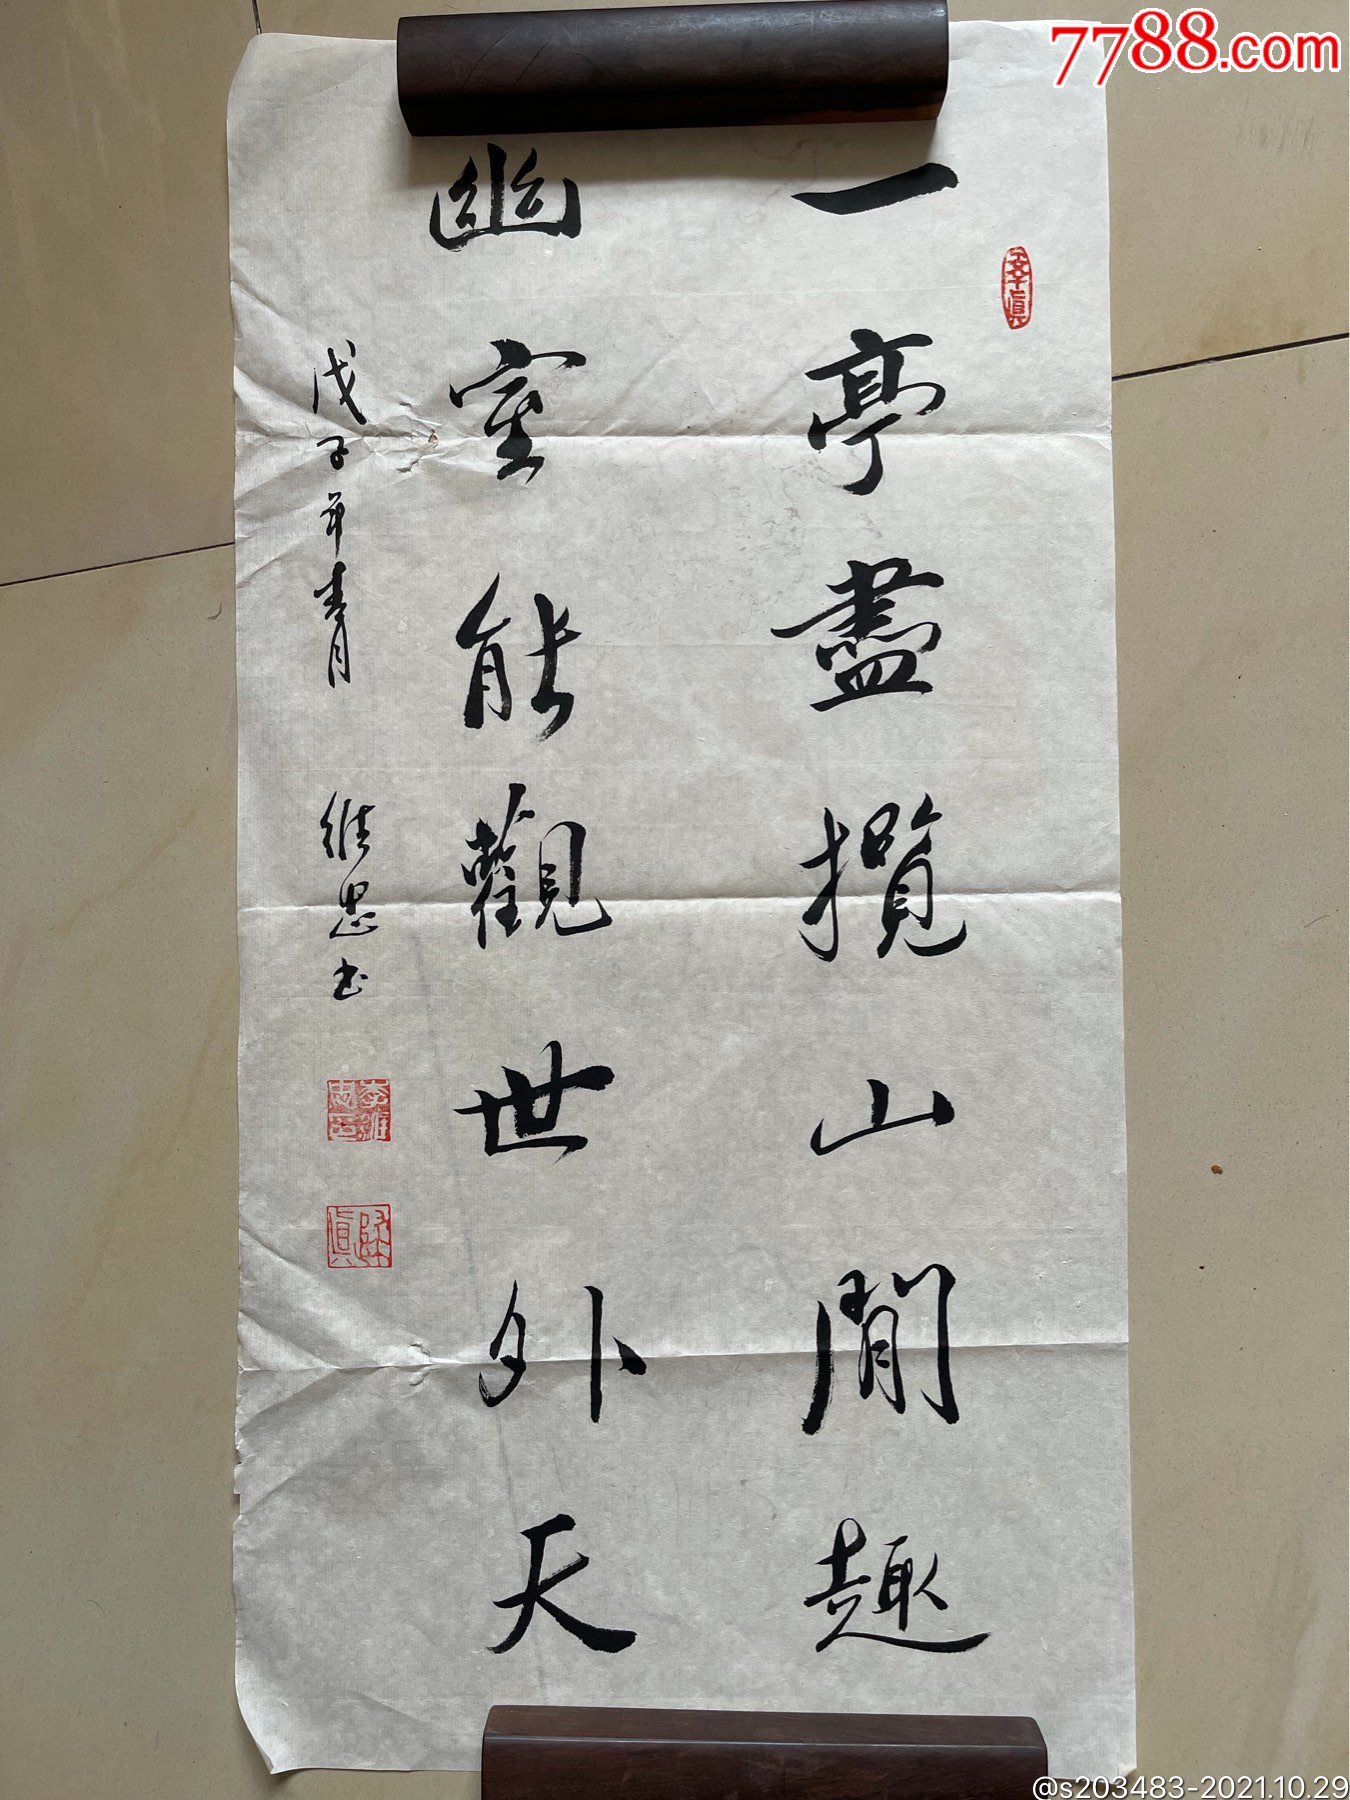 7788.com
一亭盡攬山閒趣
幽室能觀世外天
戊子年春月 維忠书
李維忠印
歸真
@s203483-2021.10.29